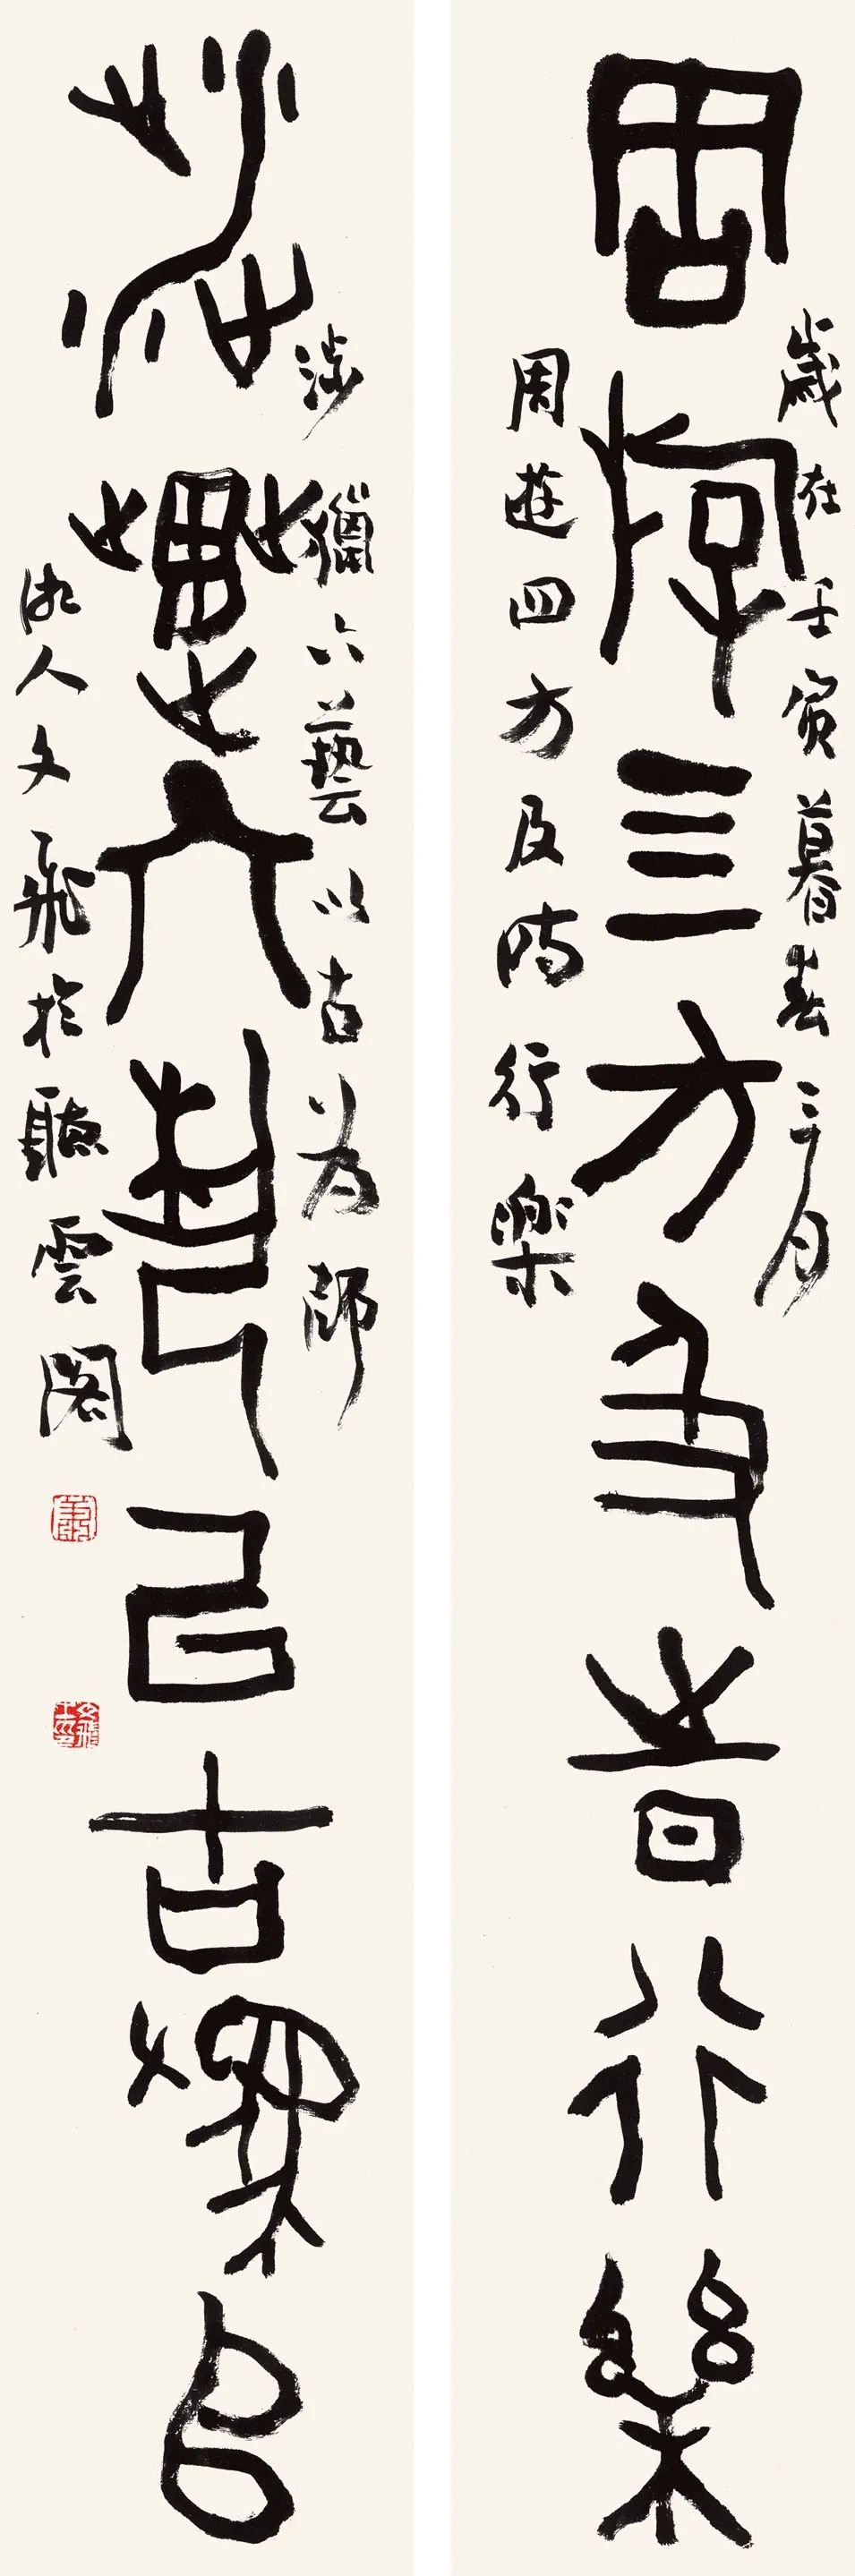 周游四方及時行樂
歲在壬寅暮春三月
周遊四方及時行樂
涉獵六藝以古為師
涉獵六藝以古為師
湘人文飛於聽雲閣